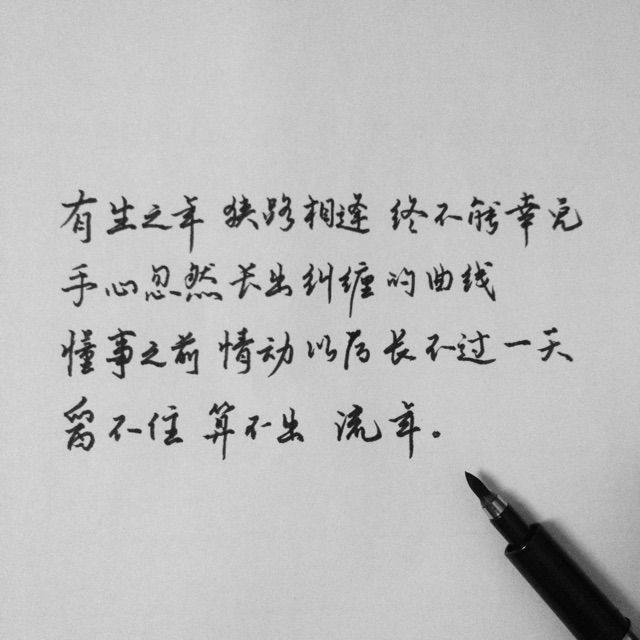 有生之年 狭路相逢 终不能幸免
手心忽然长出纠缠的曲线
懂事之前 情动以后 长不过一天
留不住 算不出 流年。